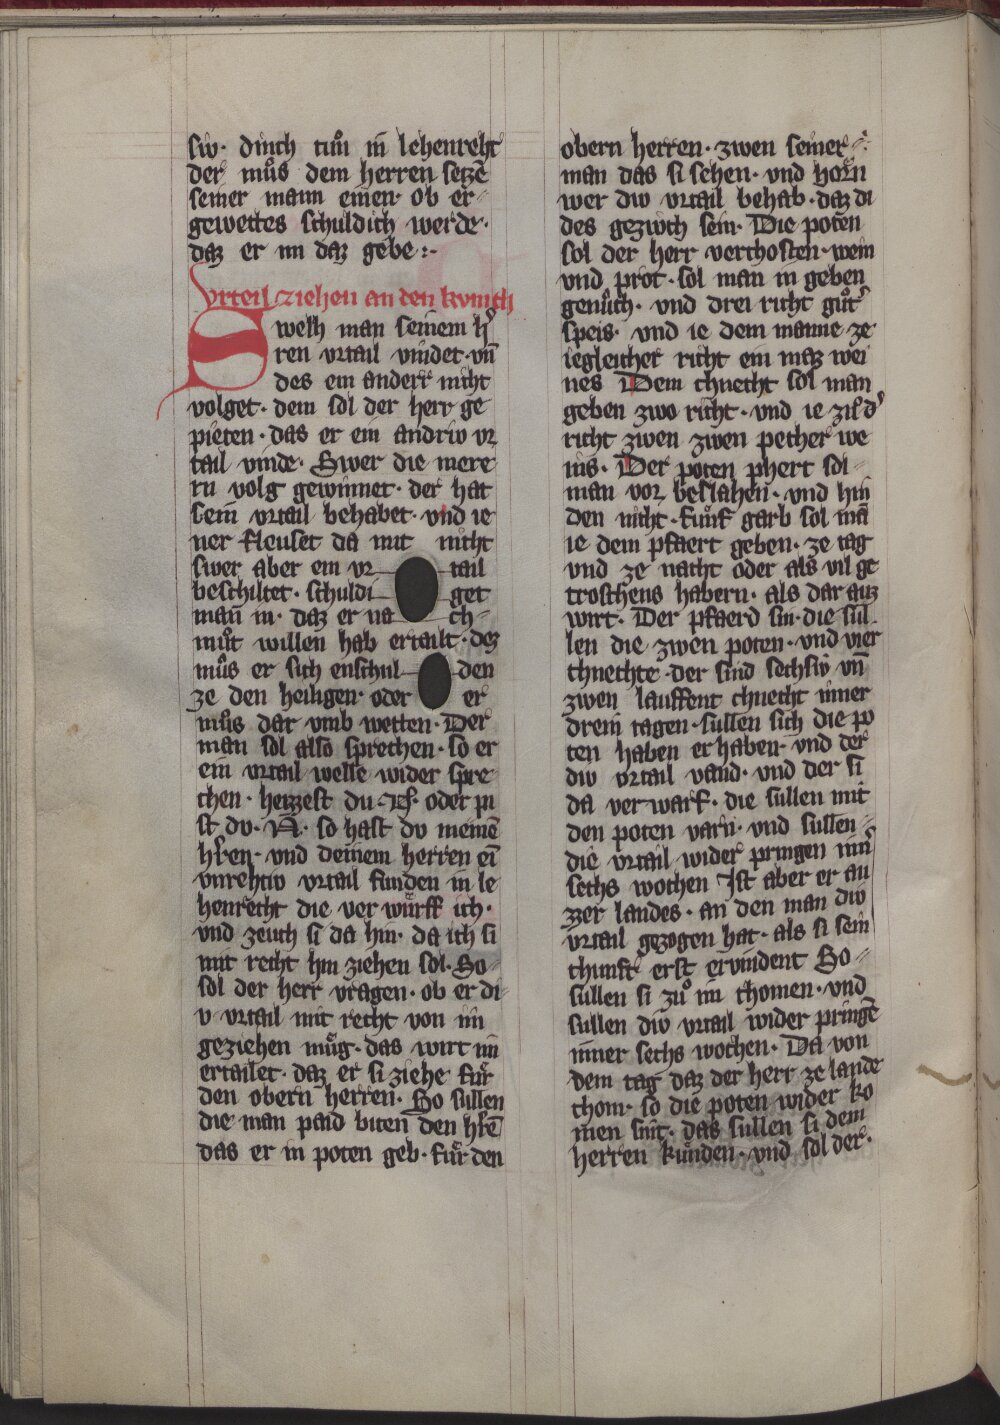 siv· dinch tuͦn in lehenreht
der muͦs dem herren setzē
seiner mann einen· ob er⸗
gewettes schuldich werde·
daz er im daz gebe:·
Vrteil ziehen an den kvnich
Swelh man seinem h̄
ren vrtail vindet·vn̄
des ein anderr nicht
volget· dem sol der herr ge
pieten· das er ein andriv vr
tail vinde· Swer die mere
rn volg gewinnet· der hat
sein vrtail behabet· vnd ie
ner fleuset da mit nicht
swer aber ein vr tail
beschiltet· schuldi get
man̄ in· daz er na ch⸗
muͦt willen hab ertailt· dez
muͦs er sich enschul den
ze den heiligen· oder er
muͦs dar vmb wetten· Der
man sol also sprechen· so er
ein vrtail welle wider spre
chen· heizzest du· oder pi
st dv· N̄· so hast dv meinē
h̄ren· vnd deinem herren eī
vnrehtiv vrtail funden in le
henrecht die ver wuͤrff ich·
vnd zeuch si da hin· da ich si
mit recht hin ziehen sol· So⸗
sol der herr vragen· ob er di
v vrtail mit recht von im
geziehen muͤg· das wirt im
ertailet· daz er si ziehe fuͤr
den obern herren· So sullen
die man paid biten den h̄rē
das er in poten geb· fuͤr den
obern herren· zwen seiner⸗
man das si sehen· vnd horn̄
wer div vrtail behab· daz di
des gezivch sein· Die poten
sol der herr verchosten· wein
vnd prot· sol man in geben
genuͦch· vnd drei richt guͦt̄
speis· vnd ie dem manne ze
iegleicher richt ein maz wei
nes Dem chnecht sol man
geben zwo richt· vnd ie zu d̄
richt zwen zwen pecher we
ins· Der poten phert sol⸗
man vor beslahen· vnd hin
den nicht· fuͤnf garb sol mā
ie dem pfaert geben· ze tag
vnd ze nacht oder als vil ge
troschens habern· als dar auz
wirt· Der pfaerd sin· die sul
len die zwen poten· vnd vier
chnechte· der sind sechsiv vn̄
zwen lauffent chnecht inner
drein tagen· sullen sich die po
ten haben er haben· vnd der
div vrtail vand· vnd der si
da ver warf· die sullen mit
den poten varn· vnd sullen⸗
die vrtail wider pringen inn̄
sechs wochen Ist aber er au
zzer landes· an den man div
vrtail gezogen hat· als si sein
chunft erst ervindent So⸗
sullen si zuͦ im chomen· vnd
sullen div vrtail wider pringē
inner sechs wochen· Da von
dem tag daz der herr ze lande
chom· so die poten wider ko
men sint· das sullen si dem
herren kuͤnden· vnd sol der·